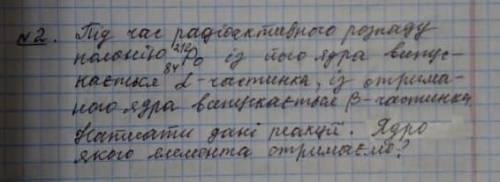 №2. Під час радіоактивного розпаду
полонію ²¹²₈₄Po із його ядра випус-
кається α-частинка, із отрима-
ного ядра випускається β-частинка.
Написати дані реакції. Ядро
якого елемента отримаємо?